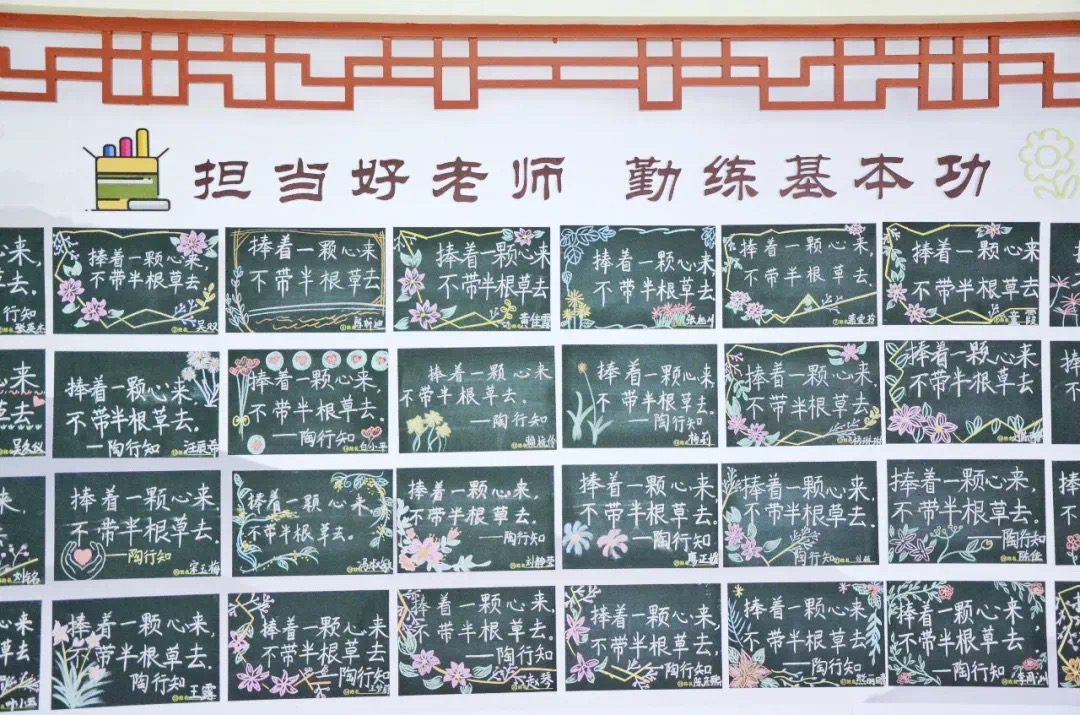 担当好老师 勤练基本功
心来,
去.
行知
捧着一颗心来,
不带半根草去
吴双
捧着一颗心来
不带半根草去
捧着一颗心来
不带半根草去
捧着一颗心来
不带半根草去
捧着一颗心来
不带半根草去
捧着一颗心来
不带半根草去
童霞
心来
草去.
捧着一颗心来
不带半根草去.
—陶行知
捧着一颗心来
不带半根草去.
—陶行知
白小平
捧着一颗心来
不带半根草去.
—陶行知
捧着一颗心来
不带半根草去.
—陶行知
杨莉
捧着一颗心来
不带半根草去.
捧着一颗心来
不带半根草去
来,
去.
刘铭
捧着一颗心来,
不带半根草去.
—陶行知
宋玉梅
捧着一颗心来,
不带半根草去.
捧着一颗心来,
不带半根草去.
—陶行知
刘静莹
捧着一颗心来,
不带半根草去.
—陶行知
捧着一颗心来,
不带半根草去.
陶行知
捧着一颗心来,
不带半根草去.
—陶行知
陈佳
心来
草去
捧着一颗心来,
不带半根草去.
陶行知
王露
捧着一颗心来,
不带半根草去
陶行知
捧着一颗心来,
不带半根草去.
—陶行知
赵琴
捧着一颗心来,
不带半根草去,
—陶行知
捧着一颗心来,
不带半根草去.
—陶行知
捧着一颗心来,
不带半根草去.
—陶行知